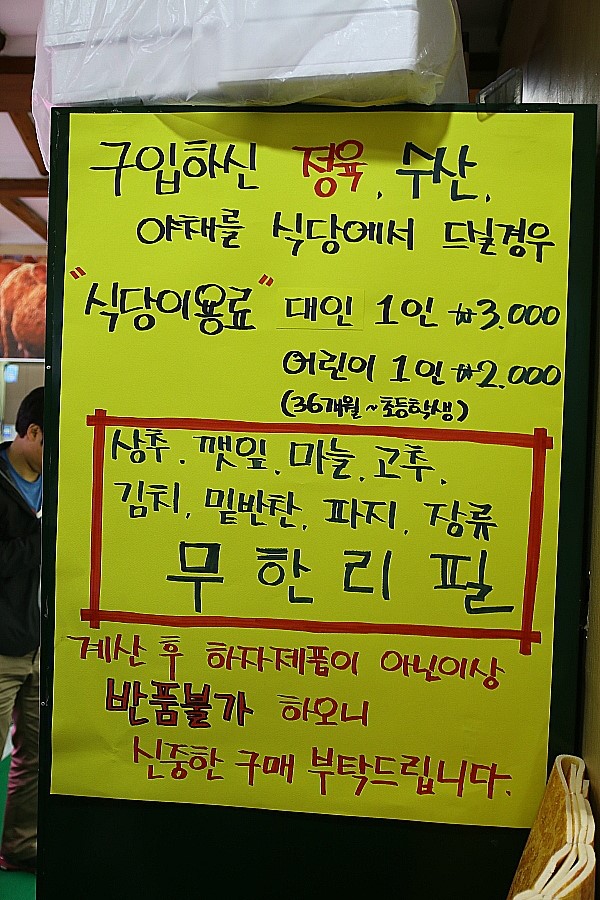 구입하신 정육, 수산,
야채를 식당에서 드실경우
"식당이용료" 대인 1인 ₩3.000
어린이 1인 ₩2.000
(36개월~초등학생)
상추, 깻잎, 마늘, 고추,
김치, 밑반찬, 파지, 장류
무한리필
계산 후 하자제품이 아닌이상
반품불가 하오니
신중한 구매 부탁드립니다.